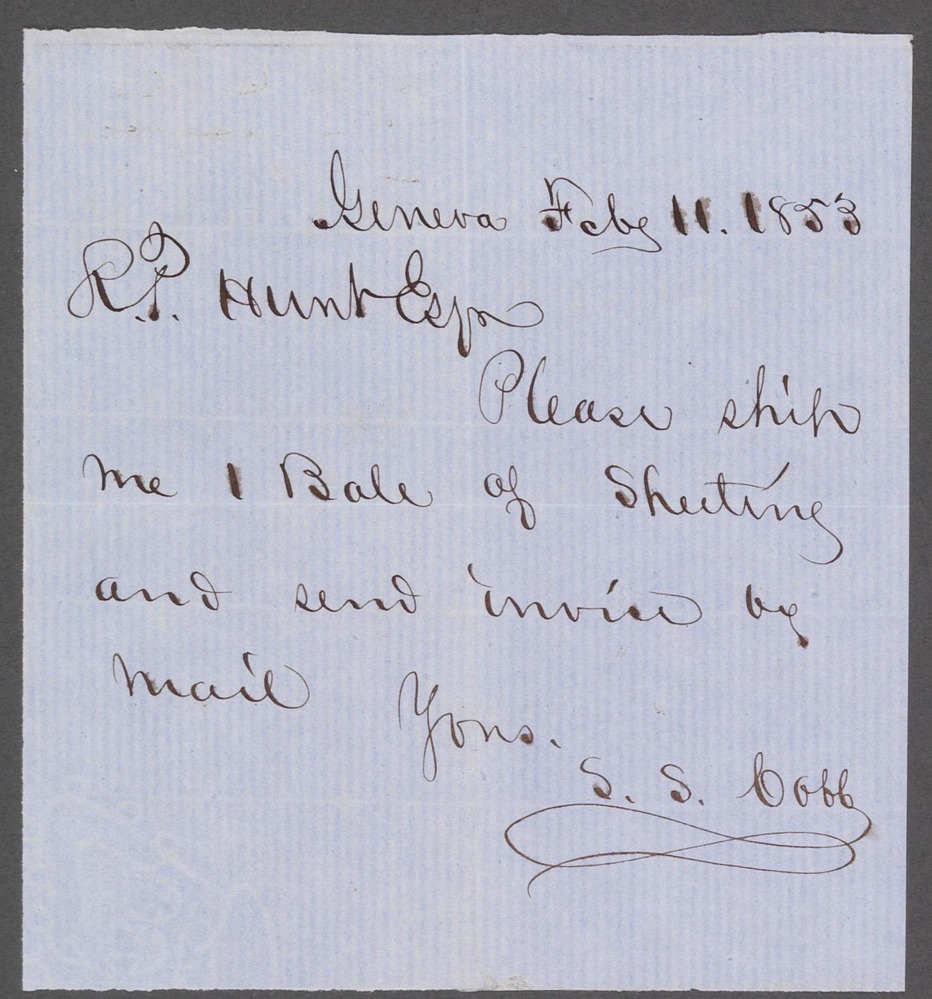 Geneva Feby 11. 1853
R.P. Hunt Esqr
Please ship
me 1 Bale of Sheeting
and send invoice by
mail Yours.
S. S. Cobb